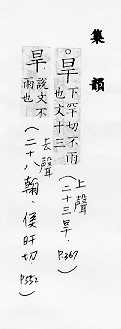 集韻
○旱 下罕切不雨
也文十三
上聲
(二十三旱. P.369)
旱 說文不
雨也
去聲
(二十八翰、侯旰切 P.552)